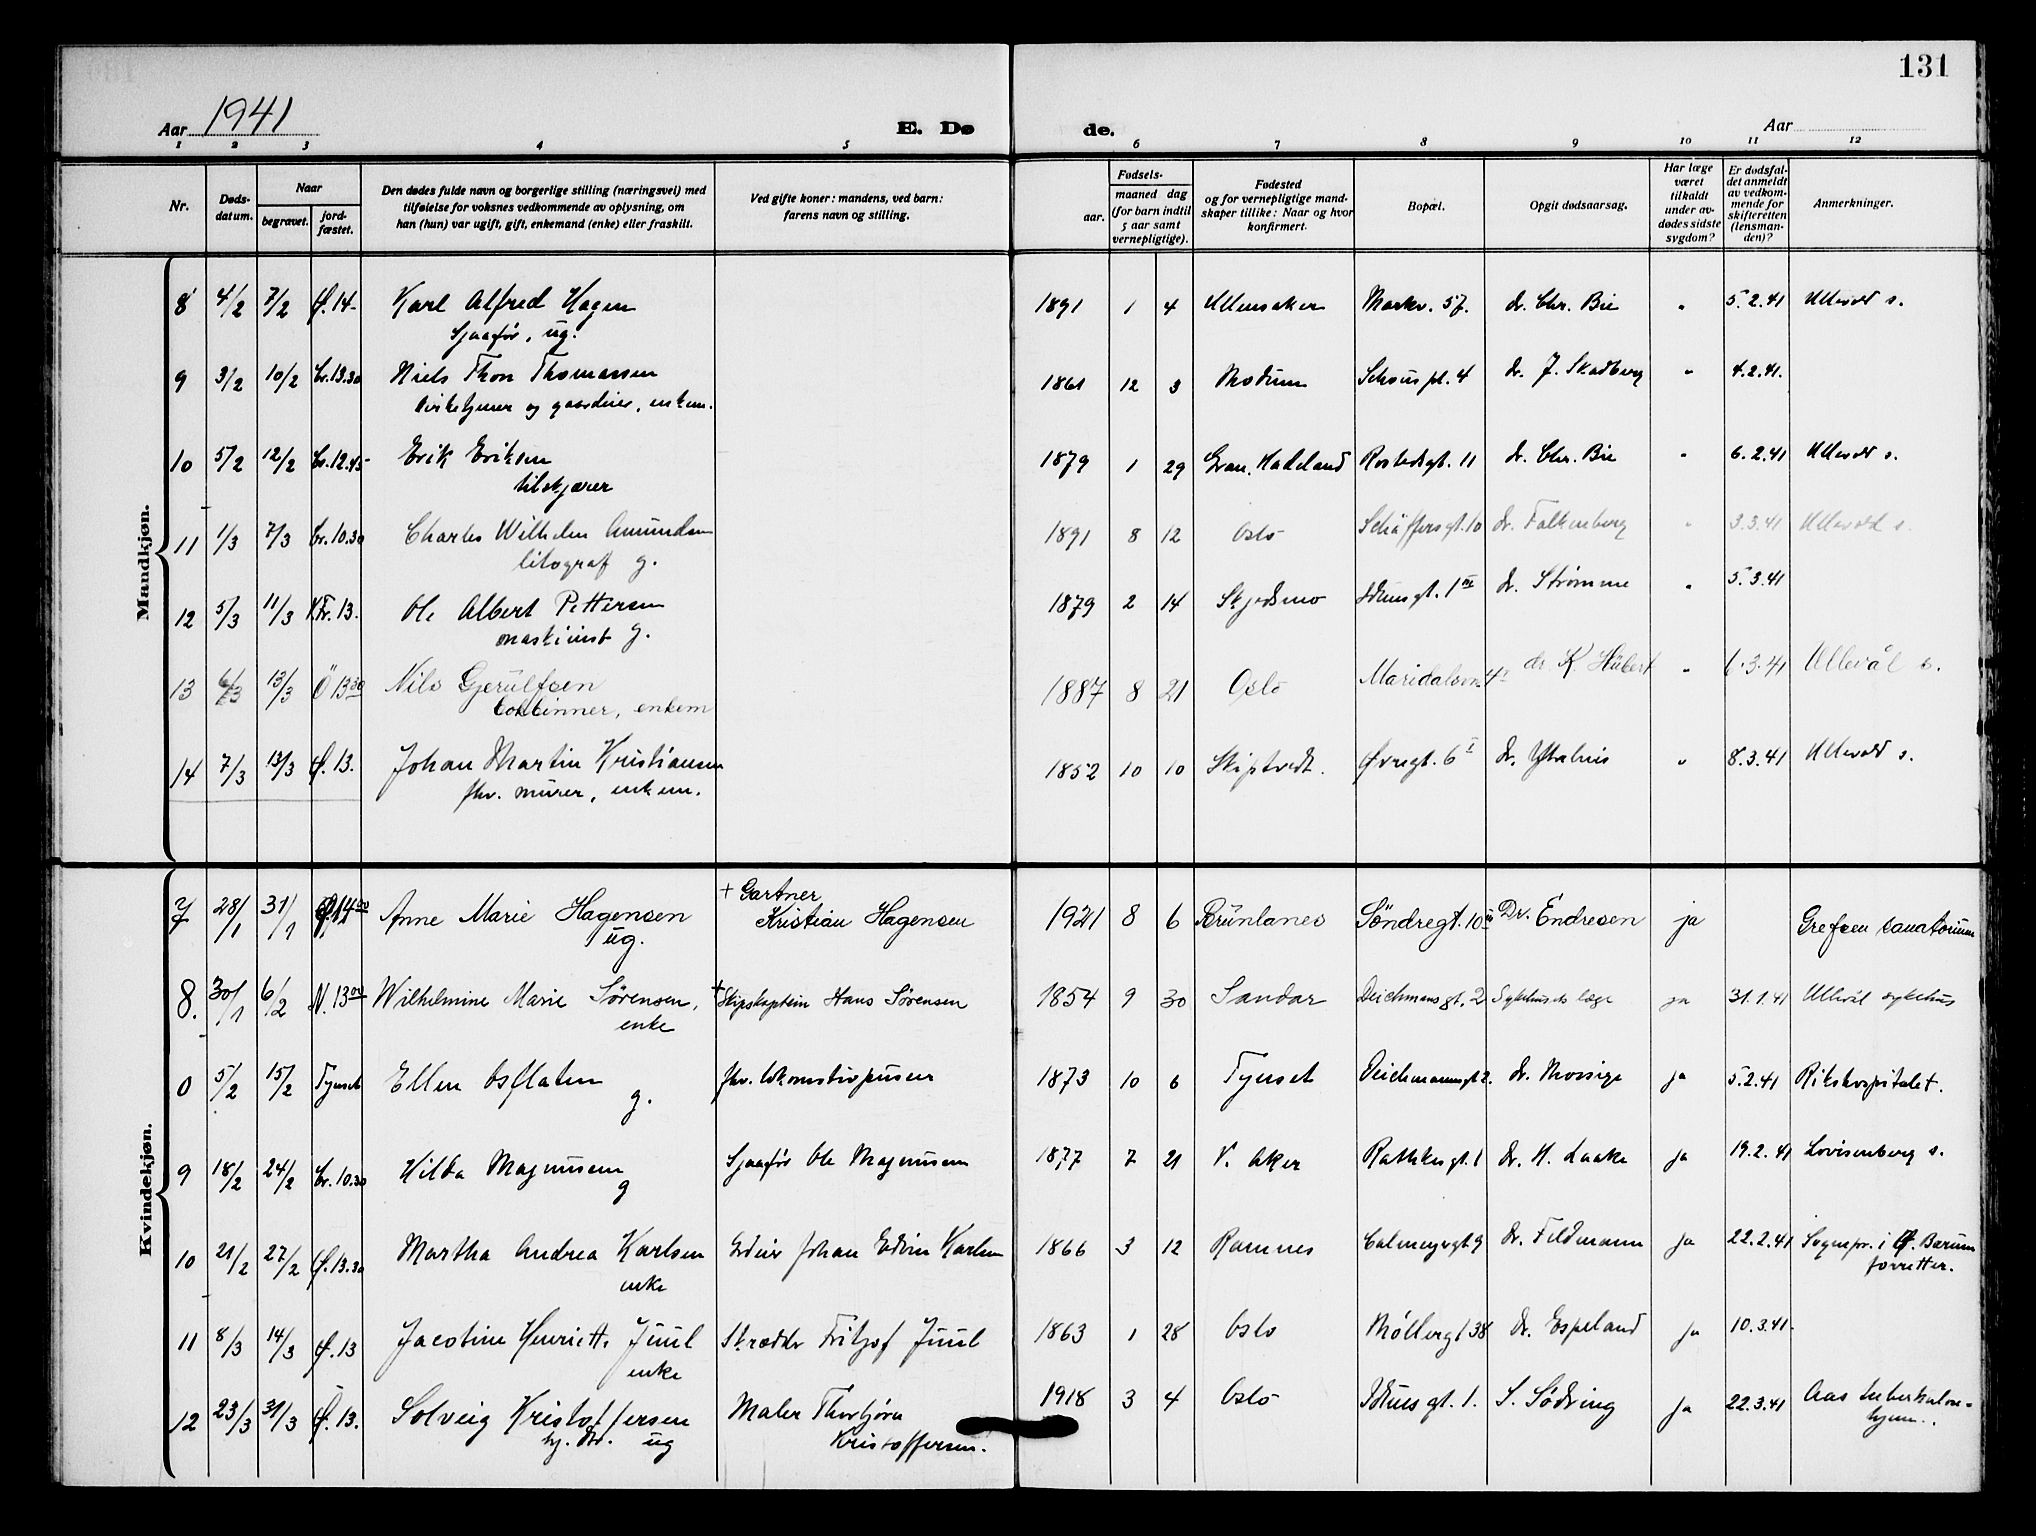 131
Aar 1941
E. Dø de.
Aar
1 2 3 4 5 6 7 8 9 10 11 12
Nr.
Døds-
datum.
Naar
begravet.
jord-
fæstet.
Den dødes fulde navn og borgerlige stilling (næringsvei) med
tilføielse for voksnes vedkommende av oplysning, om
han (hun) var ugift, gift, enkemand (enke) eller fraskilt.
Ved gifte koner: mandens, ved barn:
farens navn og stilling.
Fødsels-
aar.
maaned dag
(for barn indtil
5 aar samt
vernepligtige).
Fødested
og for vernepligtige mand-
skaper tillike: Naar og hvor
konfirmert.
Bopæl.
Opgit dødsaarsag.
Har læge
været
tilkaldt
under av-
dødes sidste
sygdom?
Er dødsfal-
det anmeldt
av vedkom-
mende for
skifteretten
(lensman-
den)?
Anmerkninger.
Mandkjøn.
8 4/2 7/2 Ø.14- Karl Alfred Hagen 1891 1 4 Ullensaker Markv. 57. dr. Chr. Bie " 5.2.41 Ullevold s.
Sjaafør, ug.
9 3/2 10/2 Cr.13.30 Niels Thon Thomassen 1861 12 3 Modum Schous pl. 4 dr. J. Skadberg " 4.2.41.
kirketjener og gaardeier, enkem.
10 5/2 12/2 Cr.12.45 Erik Eriksen 1879 1 29 Gran. Hadeland Rostedsgt. 11 dr. Chr. Bie " 6.2.41 Ullevold s.
tilskjærer
11 1/3 7/3 Cr.10.30 Charles Wilhelm Amundsen 1891 8 12 Oslo Schäffersgt. 10 dr. Falkenberg " 3.3.41 Ullevold s.
litograf g.
12 5/3 11/3 13. Ole Albert Pettersen 1879 2 14 Skjedsmo Idunsgt. 1 III dr. Strømme " 5.3.41
maskinist g.
13 6/3 13/3 Ö 13 30 Nils Gjerulfsen 1887 8 21 Oslo Maridalsvn. dr. K Hübert " 6.3.41 Ullevål s.
enkem
14 7/3 13/3 Ø.13. Johan Martin Kristiansen 1852 10 10 Skiptvedt. Øvregt. 6 I dr. Ytrehus " 8.3.41 Ullevold s.
fhv. murer, enkem.
Kvindekjøn.
7 28/1 31/1 14 00 Anne Marie Hagensen + Gartner
Kristian Hagensen 1921 8 6 Brunlanes Söndregt. 10 III Dr. Endresen ja Grefsen sanatorium
ug.
8. 30/1 6/2 N.13 00 Wilhelmine Marie Sørensen, + Skipskaptein Hans Sørensen 1854 9 30 Sandar Deichmansgt. 2 Sykehusets læge ja 31.1.41 Ullevål sykehus
enke
0 5/2 15/2 Tynset Ellen Osflaten fhv. lokomotivpusser 1873 10 6 Tynset Deichmannsgt 2. dr. Mossige ja 5.2.41 Rikshospitalet.
g.
9 18/2 24/2 Cr.10.30 Hilda Magnussen Sjaafør Ole Magnussen 1877 7 21 V. Aker Rathkesgt. 1 dr. H. Laake ja 19.2.41 Lovisenberg s.
g
10 21/2 27/2 Ø.13.30 Martha Andrea Karlsen Gdeier Johan Edvin Karlsen 1866 3 12 Ramnes Calmeyersgt 9 dr. Feldmann ja 22.2.41 Sognepr. i Ø. Bærum
enke forretter.
11 8/3 14/3 Ø.13 Jacobine Henriette Juul Skrædder Fritjof Juul 1863 1 28 Oslo Møllergt 38 dr. Espeland ja 10.3.41.
enke
12 23/3 31/3 Ø.13. Solveig Kristoffersen Maler Thorbjørn 1918 3 4 Oslo Idunsgt. 1. S. Sødring ja 22.3.41 Aas tuberkulose-
ug Kristoffersen. hjem.